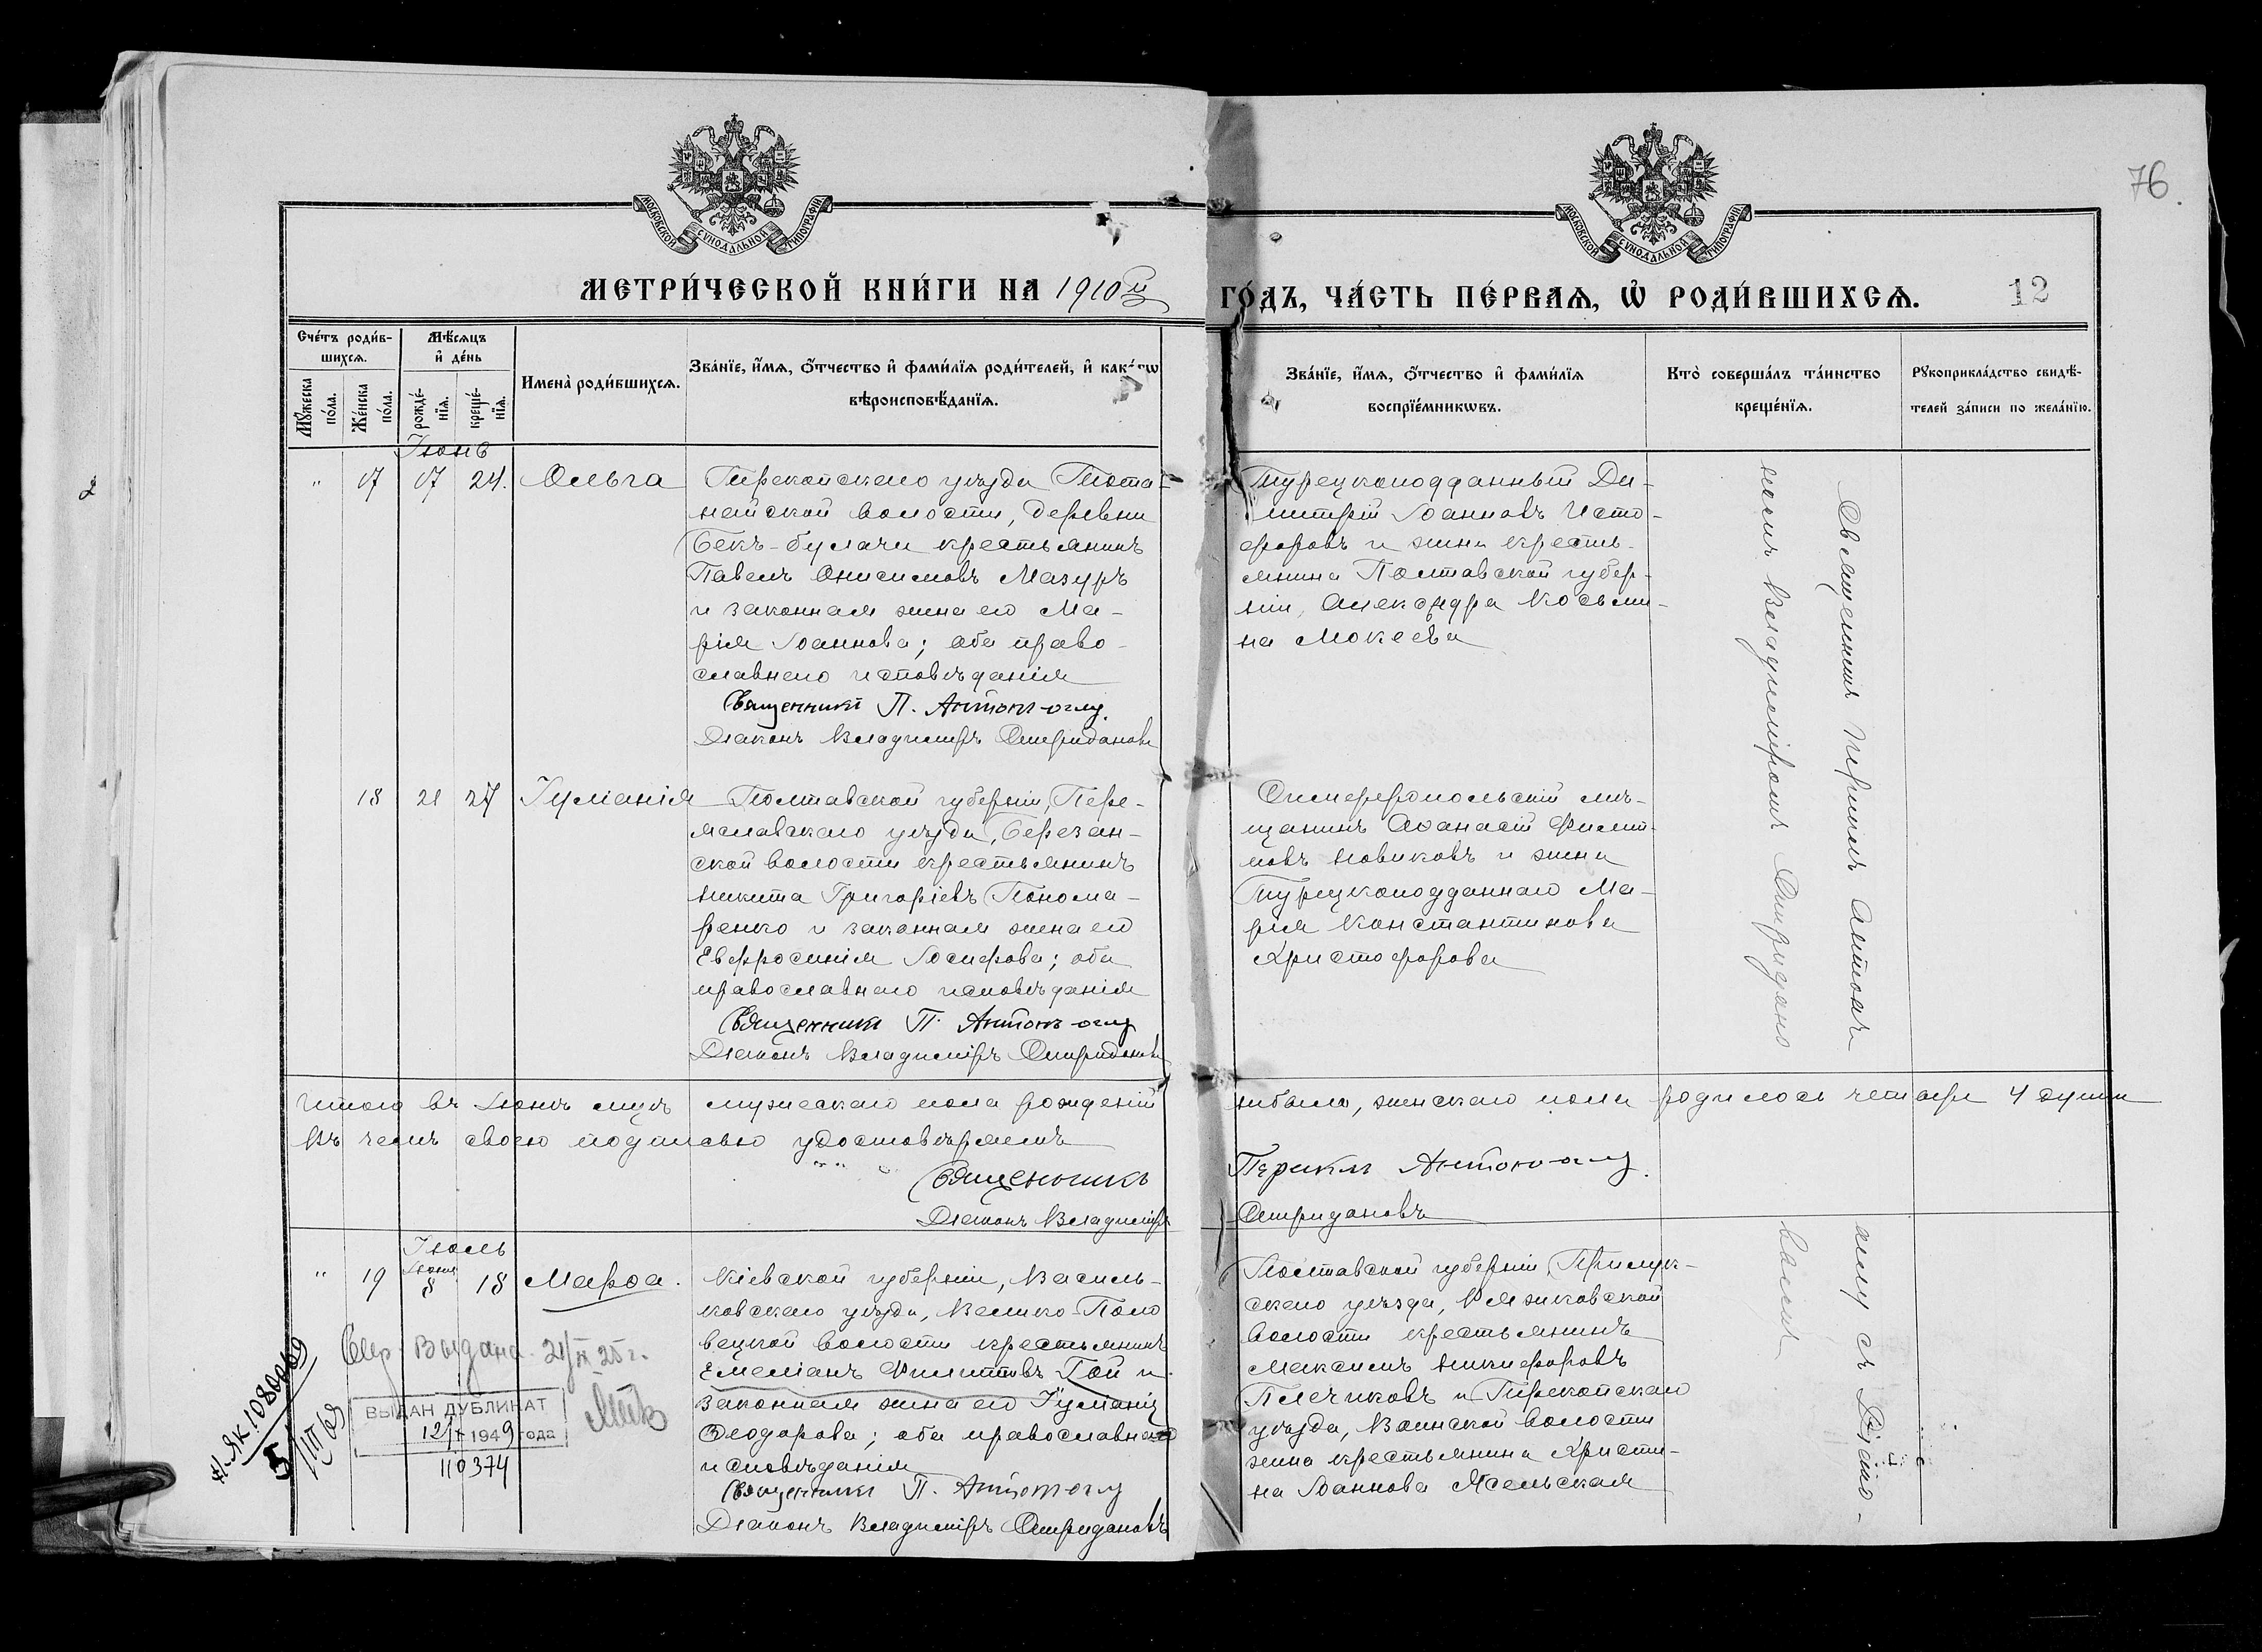 76
МОСКОВСКОЙ СУНОДАЛЬНОЙ ТИПОГРАФІИ
МОСКОВСКОЙ СУНОДАЛЬНОЙ ТИПОГРАФІИ
МЕТРИ́ЧЕСКОЙ КНИ́ГИ НА 1910й
ГО́ДЪ, ЧА́СТЬ ПЕ́РВАѦ, Ѡ҆ РОДИ́ВШИХСѦ.
12
Сче́тъ роди́в-
шихсѧ.
Мѣ́сѧцъ
и҆ де́нь
Мꙋ́жеска
по́ла.
Же́нска
по́ла.
рожде́-
нїѧ.
креще́-
нїѧ.
Имена̀ роди́вшихсѧ.
Зва́нїе, и҆́мѧ, ѻ҆́тчество и҆ фами́лїѧ роди́телей, и҆ како́гѡ
вѣроисповѣ́данїѧ.
Зва́нїе, и҆́мѧ, ѻ҆́тчество и҆ фами́лїѧ
воспрїе́мникѡвъ.
Кто̀ соверша́лъ та́инство
креще́нїѧ.
Рꙋкоприкла́дство свидѣ́-
телей за́писи по жела́нїю.
Іюнь
" 17 17 24. Ольга
Перекопскаго уѣзда
волости, деревни
Бекъ-булачи крестьянинъ
Павелъ Онисимовъ Мазуръ
и законная жена его Ма-
рія Іоаннова; оба право-
славнаго исповѣданія
Священникъ П. Антонъ-оглу
Діаконъ Владиміръ Спиридановъ
Турецкоподданный Ди-
митрій Іоанновъ Исто-
форовъ и жена кресть-
янина Полтавской губер-
ніи, Александра Косьми-
на Мокеева
Священникъ Периклъ Антонъ
оглу съ Діако-
номъ Владиміромъ Спиридано
вымъ
18 21 27 Іуліанія
Полтавской губерніи, Пере-
яславскаго уѣзда, Березан-
ской волости крестьянинъ
Никита Григоріевъ Понома-
ренко и законная жена его
Евфросинія Іосифова; оба
православнаго исповѣданія
Священникъ П. Антонъ-оглу
Діаконъ Владиміръ Спиридановъ
Симферопольскій мѣ-
щанинъ Аѳанасій Филип-
повъ Новиковъ и жена
Турецкоподданнаго Ма-
рія Константинова
Христофорова
Итого въ Іюнѣ мцѣ мужескаго пола рожденій небыло, женскаго пола родилось четыре 4 души
Въ чемъ своею подписью удостовѣряемъ
Священникъ Периклъ Антонъ-оглу.
Діаконъ Владиміръ Спиридановъ
Іюль
Іюня
" 19 8 18 Марѳа.
Кіевской губерніи, Василь-
ковскаго уѣзда, Велико-Поло
вецкой волости крестьянинъ
Емеліанъ Филипповъ Гой и
законная жена его Іуліанія
Ѳеодорова; оба православнаго
исповѣданія
Священникъ П. Антонъ-оглу
Діаконъ Владиміръ Спиридановъ
Полтавской губерніи, Прилук-
скаго уѣзда, волости крестьянинъ
Максимъ Никифоровъ
Плечиковъ и Перекопскаго
уѣзда, Воинской волости
жена крестьянина Христи-
на Іоаннова Ясельская
Выдана 21/IX 25 г.
ВЫДАН ДУБЛИКАТ
12/X 1949 года
110374